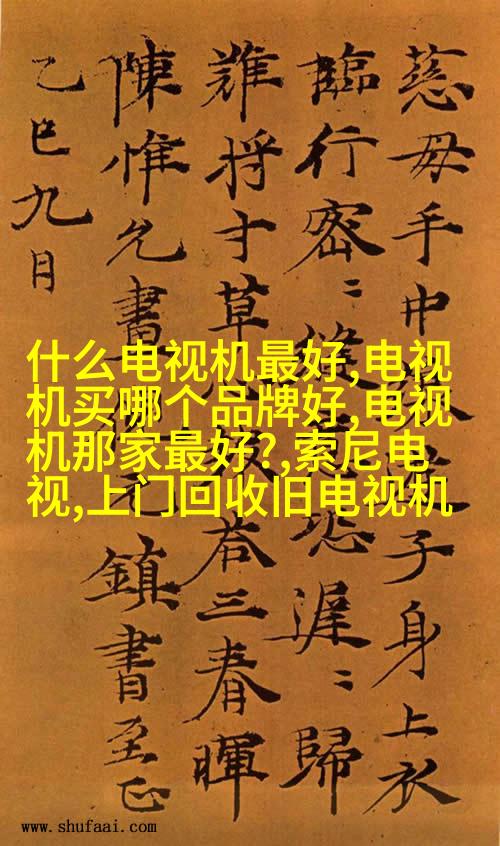 慈母手中子身上衣
臨行密〻縫恐遲〻歸
難将寸草報荅三春暉
陳惟允書鎮書至正
乙巳九月
什么电视机最好,电视
机买哪个品牌好,电视
机那家最好?,索尼电
视,上门回收旧电视机
www.shufaai.com